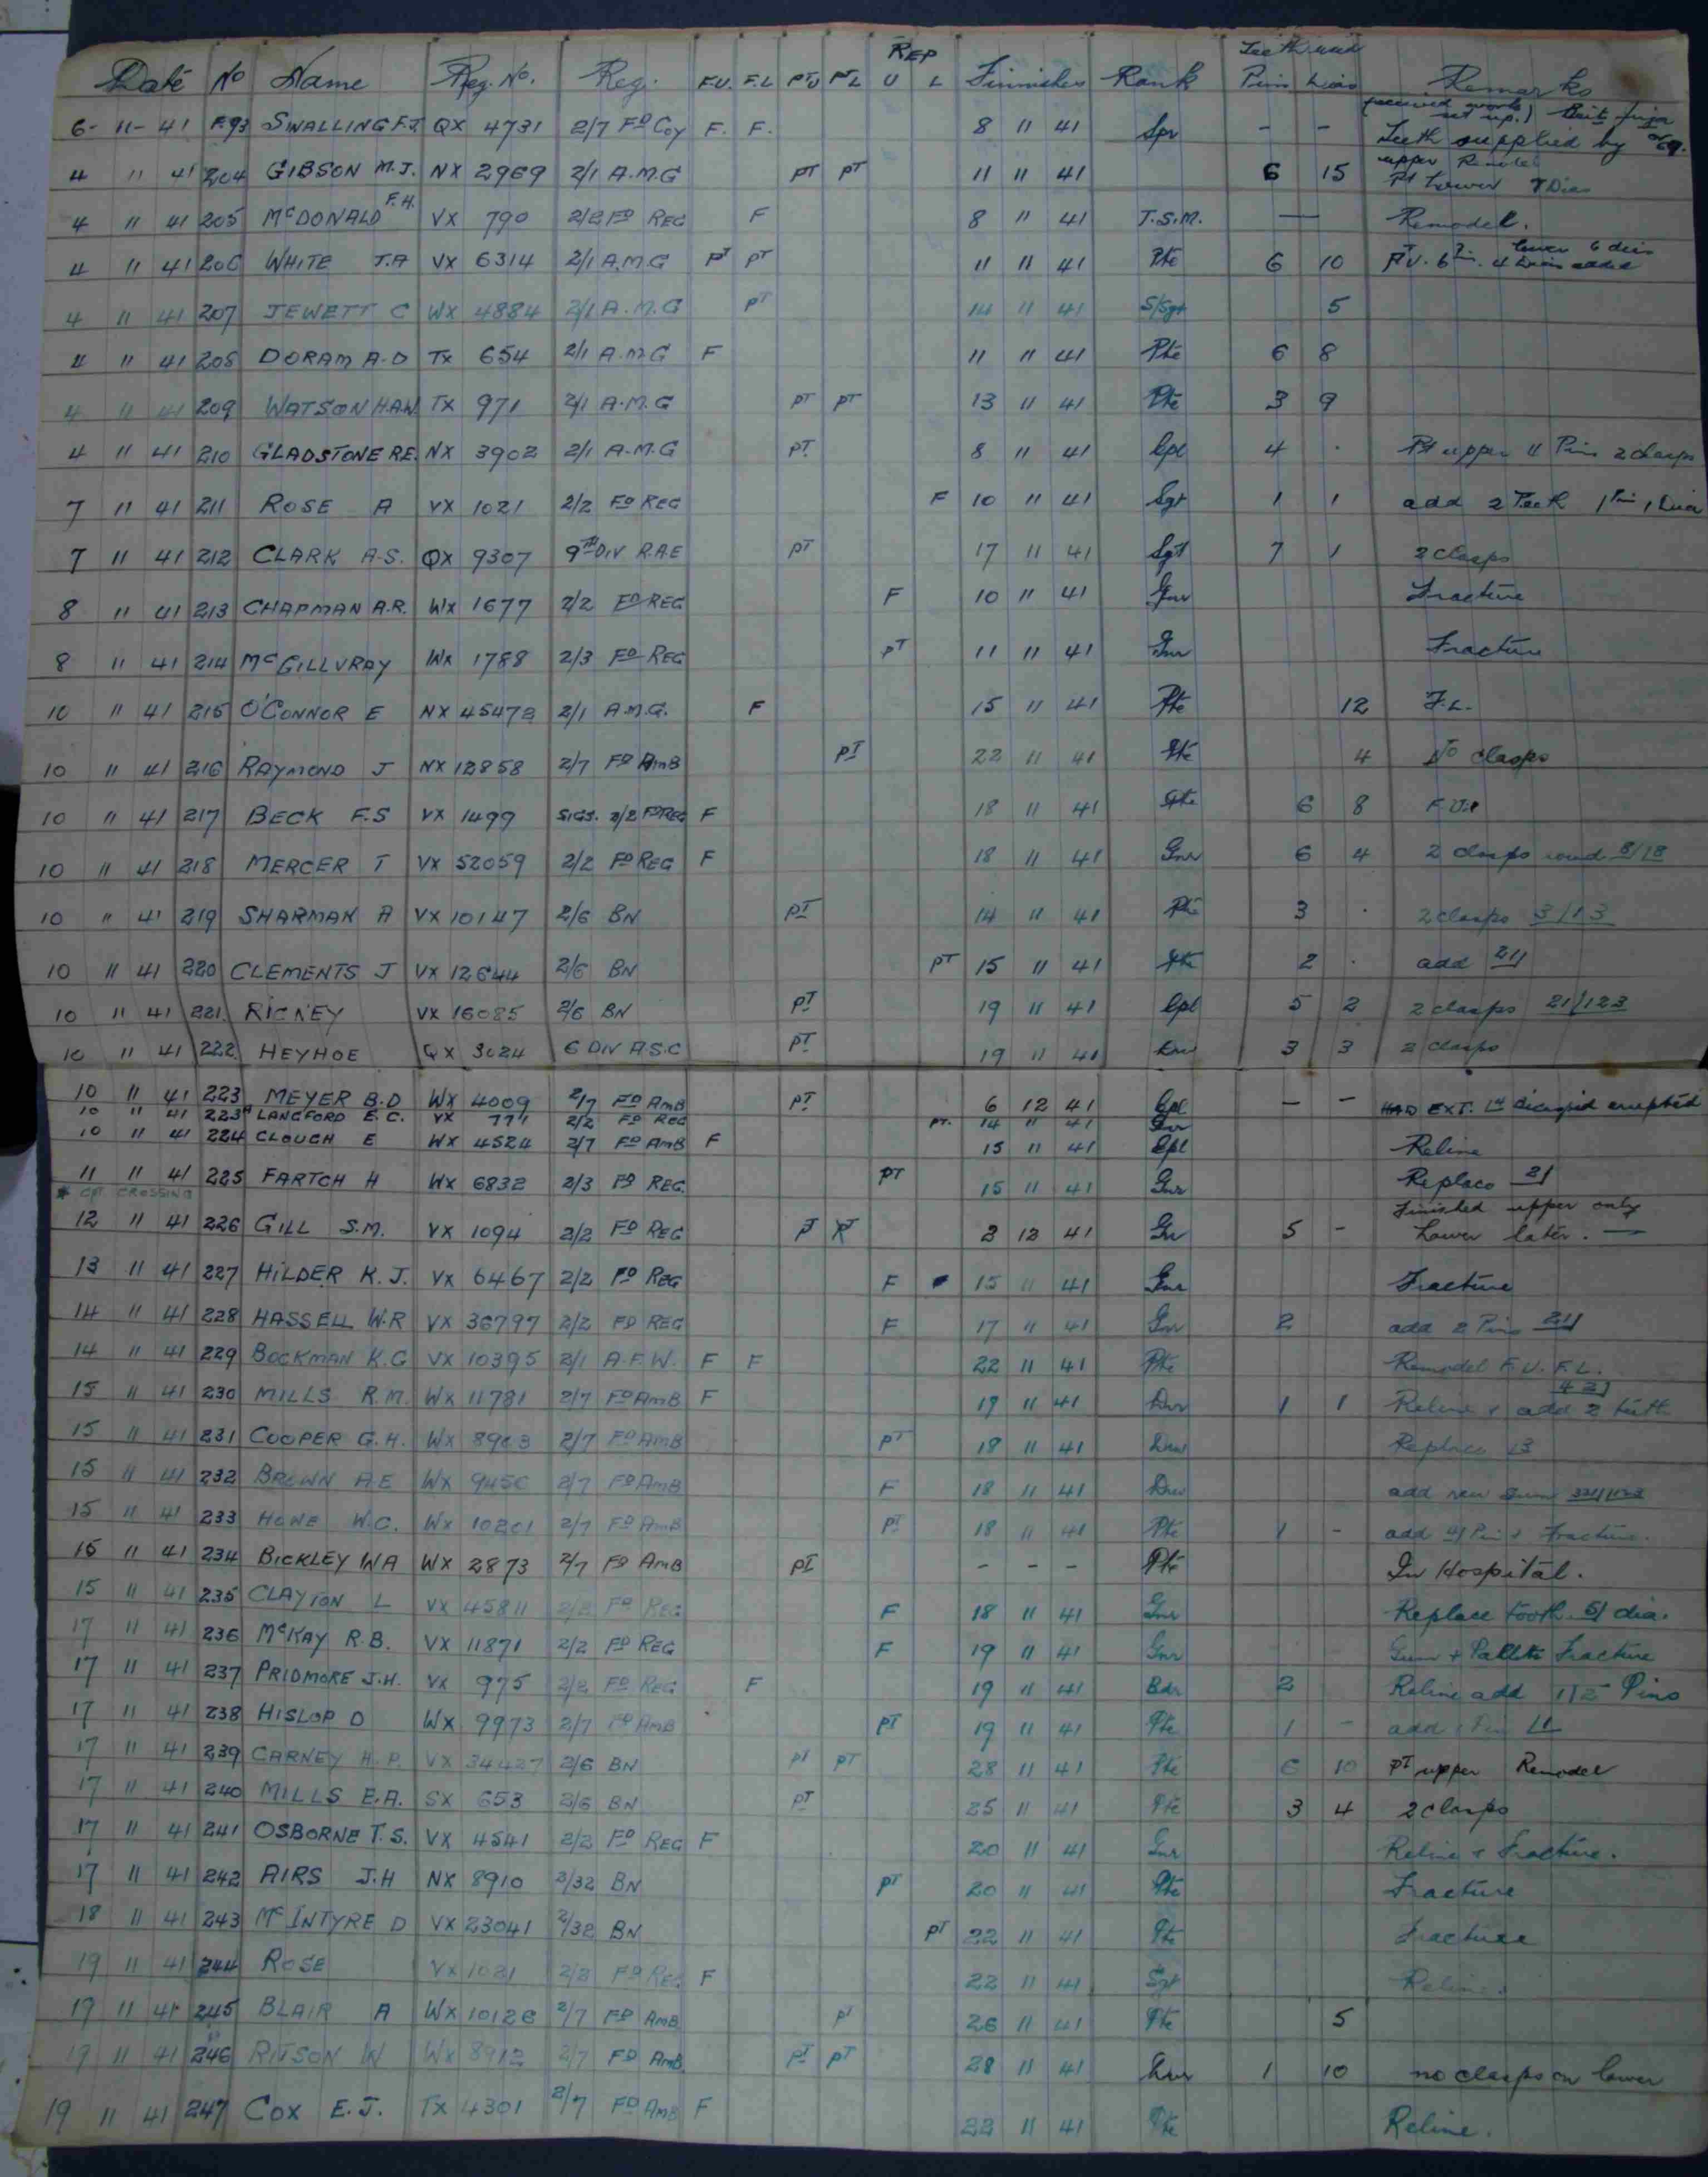 REP Teeth used
Date No Name Reg. No. Reg. F.U. F.L PTU PTL U L Finnished Rank Pins Dias Remarks
(received work set up.)
6- 11- 41 F.93 SWALLING F.J. QX 4731 2/7 FD Coy F. F. 8 11 41 Spr - - Teeth supplied by
4 11 41 204 GIBSON M.J. NX 2969 2/1 A.M.G PT PT 11 11 41 6 15 upper Pt Lower 7 Dias
4 11 41 205 McDONALD F.H. VX 790 2/2 FD REG F 8 11 41 T.S.M. — Remodel.
4 11 41 206 WHITE J.A VX 6314 2/1 A.M.G PT PT 11 11 41 Pte 6 10 lower 6 dias 4 Dias added
4 11 41 207 JEWETT C WX 4884 2/1 A.M.G PT 14 11 41 S/Sgt 5
4 11 41 208 DORAM A.D TX 654 2/1 A.M.G F 11 11 41 Pte 6 8
4 11 41 209 WATSON H.A.W TX 971 2/1 A.M.G PT PT 13 11 41 Pte 3 9
4 11 41 210 GLADSTONE R.E. NX 3902 2/1 A.M.G PT 8 11 41 Cpl 4 . Pt upper 4 Pins 2 clasps
7 11 41 211 ROSE A VX 1021 2/2 FD REG F 10 11 41 Sgt 1 1 add 2 Teeth 1 Pin 1 Dia
7 11 41 212 CLARK A.S. QX 9307 9TH DIV R.A.E PT 17 11 41 Sgt 7 1 2 clasps
8 11 41 213 CHAPMAN A.R. WX 1677 2/2 FD REG F 10 11 41 Gnr Fracture
8 11 41 214 McGILLVRAY WX 1788 2/3 FD REG PT 11 11 41 Gnr Fracture
10 11 41 215 O'CONNOR E NX 45472 2/1 A.M.G. F 15 11 41 Pte 12 F.L.
10 11 41 216 RAYMOND J NX 12858 2/7 FD AMB PT 22 11 41 Pte 4 No clasps
10 11 41 217 BECK F.S VX 1499 SIGS. 2/2 FD REG F 18 11 41 6 8 F.U.
10 11 41 218 MERCER T VX 52059 2/2 FD REG F 18 11 41 Gnr 6 4 2 clasps round 8/18
10 11 41 219 SHARMAN A VX 10147 2/6 BN PT 14 11 41 Pte 3 . 2 clasps 3/13
10 11 41 220 CLEMENTS J VX 12644 2/6 BN PT 15 11 41 Pte 2 . add 21/
10 11 41 221 RICKEY VX 16085 2/6 BN PT 19 11 41 Cpl 5 2 2 clasps 21/123
10 11 41 222 HEYHOE QX 3024 6 DIV A.S.C PT 19 11 41 Dvr 3 3 2 clasps
10 11 41 223 MEYER B.D WX 4009 2/7 FD AMB PT 6 12 41 Cpl - - HAD EXT. erupted
10 11 41 223A LANGFORD E.C. VX 771 2/2 FD REG PT. 14 11 41 Gnr
10 11 41 224 CLOUGH E WX 4524 2/7 FD AMB F 15 11 41 Cpl Reline
11 11 41 225 FARTCH H WX 6832 2/3 FD REG. PT 15 11 41 Gnr Replace 2/
* CPT. CROSSING
12 11 41 226 GILL S.M. VX 1094 2/2 FD REG PT PT 2 12 41 Gnr 5 - Finished upper only Lower later. —
13 11 41 227 HILDER K.J. VX 6467 2/2 FD REG F 15 11 41 Gnr Fracture
14 11 41 228 HASSELL W.R VX 36797 2/2 FD REG F 17 11 41 Gnr 2 add 2 Pins 21/
14 11 41 229 BOCKMAN K.G VX 10395 2/1 A.F.W. F F 22 11 41 Pte Remodel F.U. F.L.
15 11 41 230 MILLS R.M. WX 11781 2/7 FD AMB F 19 11 41 Dvr 1 1 Reline & add 2 teeth 42/
15 11 41 231 COOPER G.H. WX 8963 2/7 FD AMB PT 18 11 41 Dvr Replace /3
15 11 41 232 BROWN A.E WX 9450 2/7 FD AMB F 18 11 41 Dvr add new gum 321/123
15 11 41 233 HOWE W.C. WX 10201 2/7 FD AMB PT 18 11 41 Pte 1 - add 4/ Pin & Fracture.
15 11 41 234 BICKLEY W A WX 2873 2/7 FD AMB PT - - - Pte In Hospital.
15 11 41 235 CLAYTON L VX 45811 2/2 FD REG F 18 11 41 Gnr Replace tooth 5/ dia.
17 11 41 236 McKAY R.B. VX 11871 2/2 FD REG F 19 11 41 Gnr Gum + Pallate Fracture
17 11 41 237 PRIDMORE J.H. VX 975 2/2 FD REG F 19 11 41 Bdr 2 Reline add 1/2 Pins
17 11 41 238 HISLOP D WX 9973 2/7 FD AMB PT 19 11 41 Pte 1 - add 1 Pin /1
17 11 41 239 CARNEY H.P. VX 34427 2/6 BN PT PT 28 11 41 Pte 6 10 PT upper Remodel
17 11 41 240 MILLS E.A. SX 653 2/6 BN PT 25 11 41 Pte 3 4 2 clasps
17 11 41 241 OSBORNE T.S. VX 4541 2/2 FD REG F 20 11 41 Gnr Reline & Fracture.
17 11 41 242 AIRS J.H NX 8910 2/32 BN PT 20 11 41 Pte Fracture
18 11 41 243 McINTYRE D VX 23041 2/32 BN PT 22 11 41 Pte Fracture
19 11 41 244 ROSE VX 1021 2/2 FD REG F 22 11 41 Sgt Reline.
19 11 41 245 BLAIR A WX 10126 2/7 FD AMB PT 26 11 41 Pte 5
19 11 41 246 RITSON W WX 8912 2/7 FD AMB PT PT 28 11 41 Dvr 1 10 no clasps on lower
19 11 41 247 COX E.J. TX 4301 2/7 FD AMB F 22 11 41 Pte Reline.